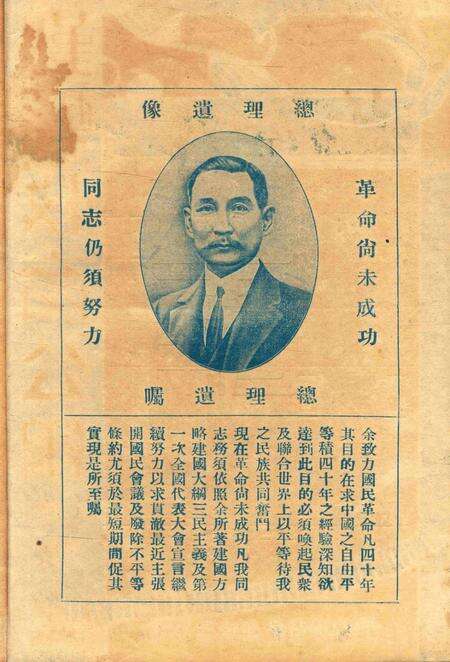 總理遺像
革命尚未成功
同志仍須努力
總理遺囑
余致力國民革命凡四十年
其目的在求中國之自由平
等積四十年之經驗深知欲
達到此目的必須喚起民衆
及聯合世界上以平等待我
之民族共同奮鬥
現在革命尚未成功凡我同
志務須依照余所著建國方
略建國大綱三民主義及第
一次全國代表大會宣言繼
續努力以求貫徹最近主張
開國民會議及廢除不平等
條約尤須於最短期間促其
實現是所至囑